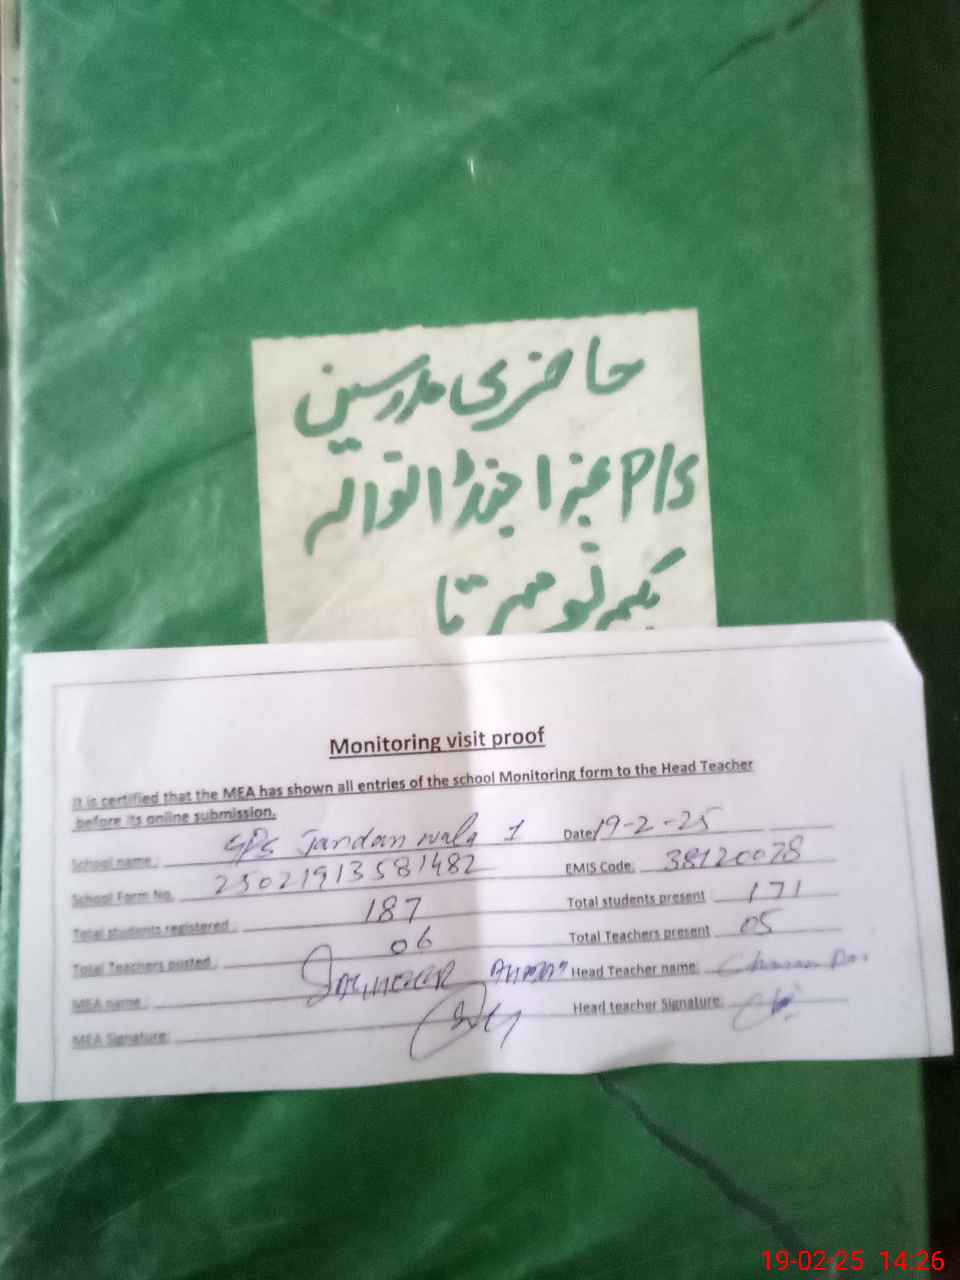 حاضری مدرسین
P/S نمبر 1 جنڈانوالہ
یکم نومبر تا
Monitoring visit proof
It is certified that the MEA has shown all entries of the school Monitoring form to the Head Teacher
before its online submission.
School name : GPS Jandanwala 1 Date: 19-2-25
School Form No. 25021913581482 EMIS Code: 38120078
Total students registered : 187 Total students present 171
Total Teachers posted : 06 Total Teachers present 05
MEA name : Head Teacher name:
MEA Signature: Head teacher Signature:
19-02-25 14:26